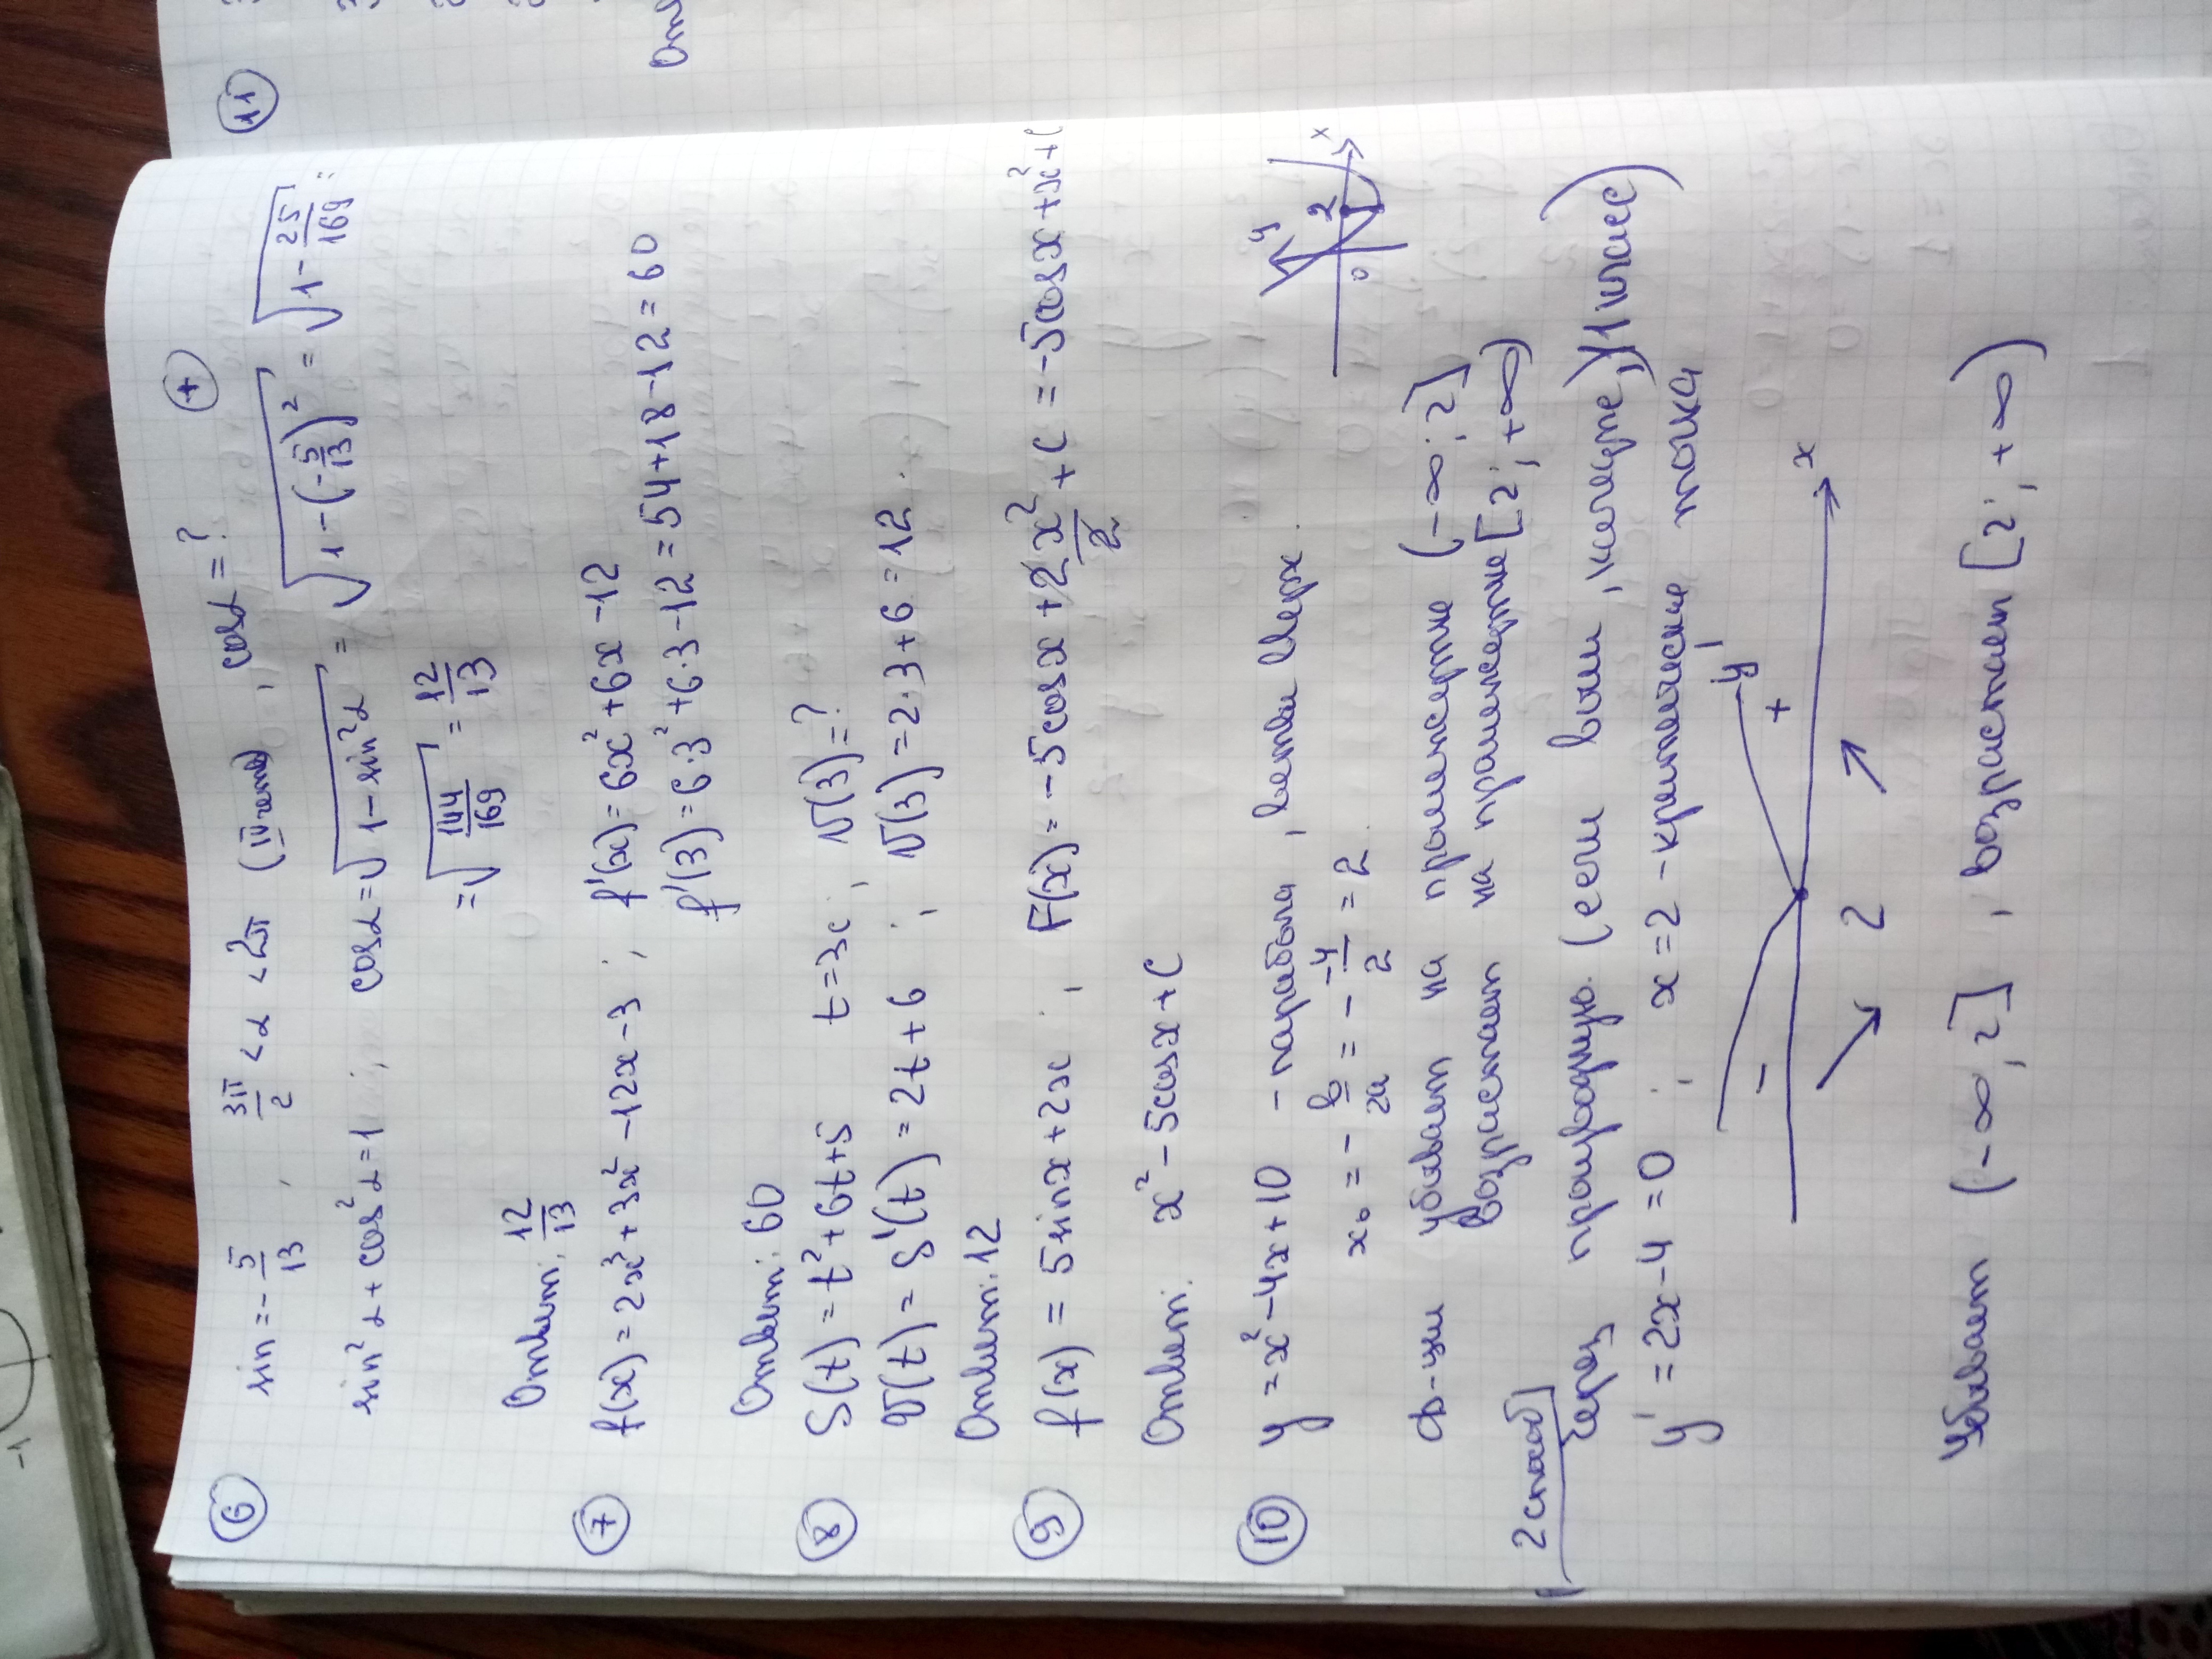 ⑥ sin = -5/13, 3π/2 < α < 2π (IV четв), cosα = ? ⊕
sin²α + cos²α = 1; cosα = √(1 - sin²α) = √(1 - (-5/13)²) = √(1 - 25/169) =
= √(144/169) = 12/13
Ответ: 12/13
⑦ f(x) = 2x³ + 3x² - 12x - 3; f'(x) = 6x² + 6x - 12
f'(3) = 6·3² + 6·3 - 12 = 54 + 18 - 12 = 60
Ответ: 60
⑧ S(t) = t² + 6t + 5 t = 3c, v(3) = ?
v(t) = S'(t) = 2t + 6; v(3) = 2·3 + 6 = 12
Ответ: 12
⑨ f(x) = 5sinx + 2x; F(x) = -5cosx + 2x²/2 + C = -5cosx + x² + C
Ответ: x² - 5cosx + C
⑩ y = x² - 4x + 10 - парабола, ветви вверх.
x₀ = -b/2a = -(-4)/2 = 2.
y
2
0
x
ф-ции убывает на промежутке (-∞; 2]
возрастает на промежутке [2; +∞)
2 способ
Через производную. (если 11 класс)
y' = 2x - 4 = 0; x = 2 - критические точка
y'
- + x
2
Убывает (-∞, 2], возрастает [2; +∞)
⑪
-1